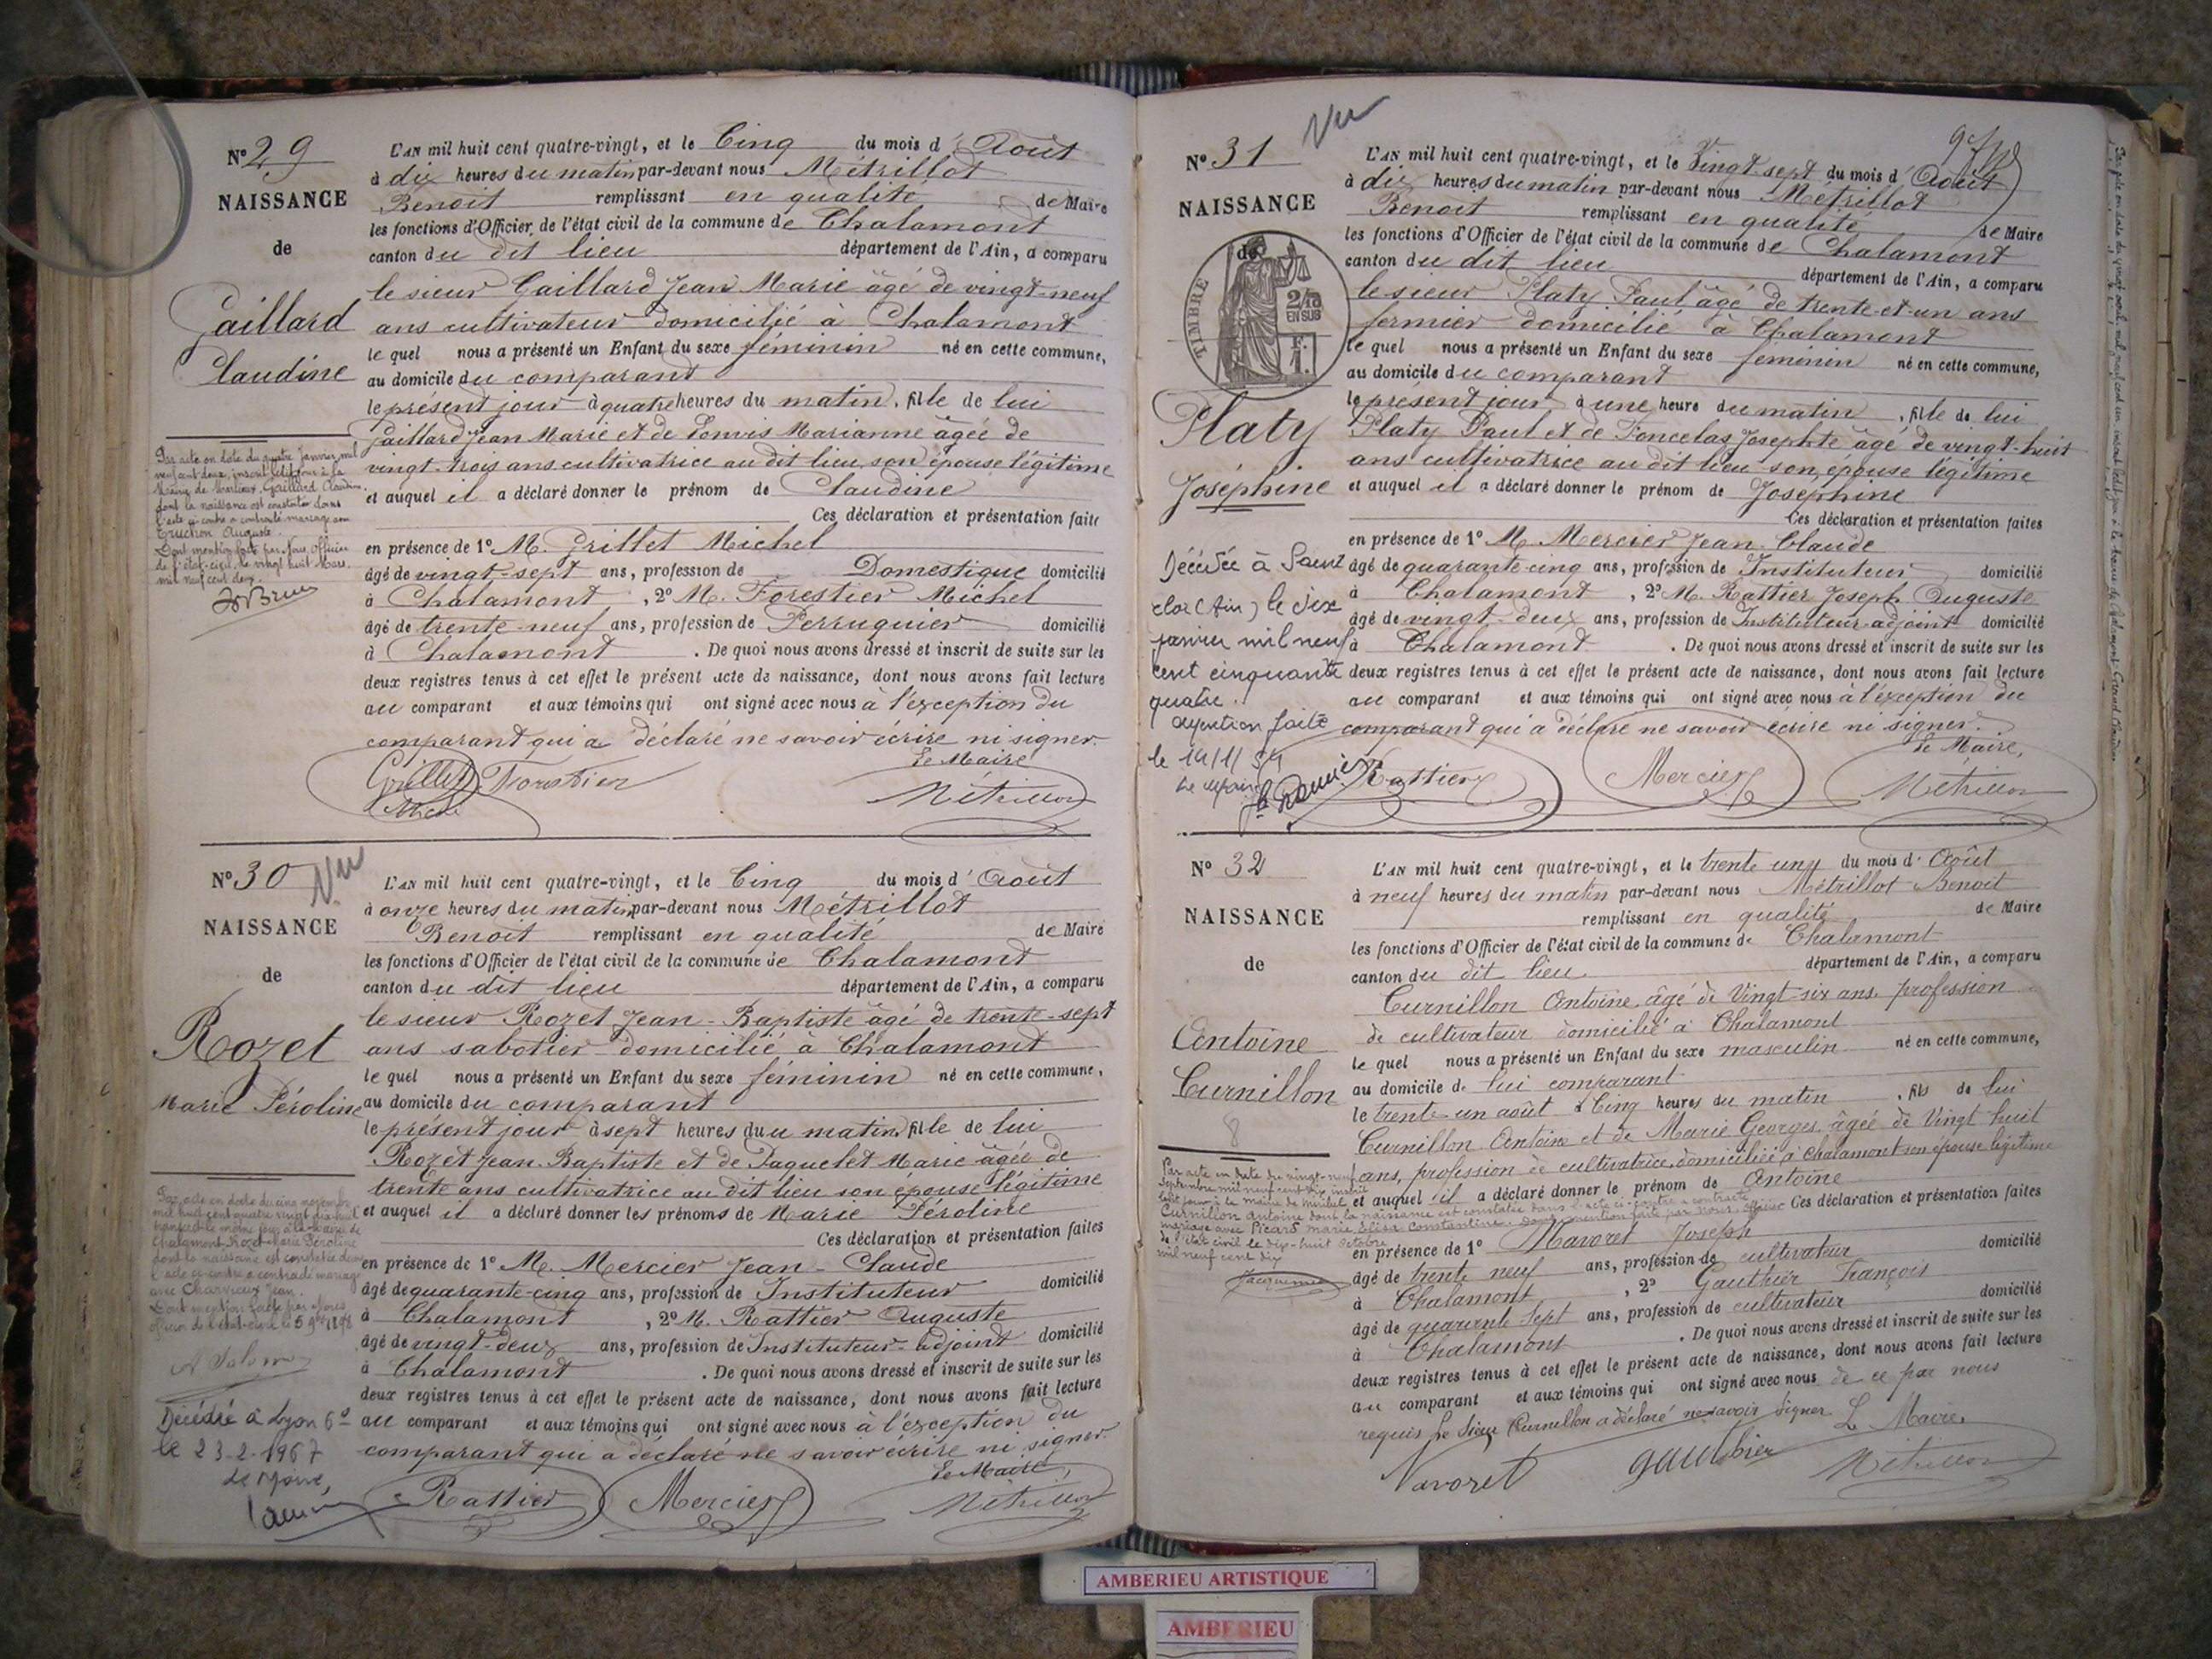 N° 29
NAISSANCE
de
Gaillard
Claudine
Par acte en date du quatre Janvier mil
neuf cent deux, inscrit
Mairie de Gaillard Claudine
dont la naissance est constatée dans
l'acte ci-contre a contracté mariage avec
Truchon Auguste.
Dont mention faite par Nous, Officier
de l'état-civil, le vingt huit Mars
mil neuf cent deux.
L'AN mil huit cent quatre-vingt, et le Cinq du mois d'Août
à dix heures du matin par-devant nous Métrillot
Benoit remplissant en qualité de Maire
les fonctions d'Officier de l'état civil de la commune de Chalamont
canton du dit lieu département de l'Ain, a comparu
le sieur Gaillard Jean Marie âgé de vingt-neuf
ans cultivateur domicilié à Chalamont
le quel nous a présenté un Enfant du sexe féminin né en cette commune,
au domicile du comparant
le présent jour à quatre heures du matin, fille de lui
Gaillard Jean Marie et de Marianne âgée de
vingt-trois ans cultivatrice au dit lieu, son épouse légitime
et auquel il a déclaré donner le prénom de Claudine
Ces déclaration et présentation faite
en présence de 1° M. Grillet Michel
âgé de vingt-sept ans, profession de Domestique domicilié
à Chalamont, 2° M. Forestier Michel
âgé de trente-neuf ans, profession de Perruquier domicilié
à Chalamont. De quoi nous avons dressé et inscrit de suite sur les
deux registres tenus à cet effet le présent acte de naissance, dont nous avons fait lecture
au comparant et aux témoins qui ont signé avec nous à l'exception du
comparant qui a déclaré ne savoir écrire ni signer.
Le Maire
Grillet Forestier Métrillot
Michel
N° 30 Vu
NAISSANCE
de
Rozet
Marie Péroline
Par acte en date du cinq novembre
mil huit cent quatre vingt dix-huit
le même jour à la Mairie de
Chalamont Rozet Marie Péroline
dont la naissance est constatée dans
l'acte ci-contre a contracté mariage
avec Charvieux Jean.
Dont mention faite par Nous
officier de l'état-civil le 5 9bre 1898
Décédée à Lyon 6e
le 23-2-1967
Le Maire,
L'AN mil huit cent quatre-vingt, et le Cinq du mois d'Août
à onze heures du matin par-devant nous Métrillot
Benoit remplissant en qualité de Maire
les fonctions d'Officier de l'état civil de la commune de Chalamont
canton du dit lieu département de l'Ain, a comparu
le sieur Rozet Jean-Baptiste âgé de trente-sept
ans sabotier domicilié à Chalamont
le quel nous a présenté un Enfant du sexe féminin né en cette commune,
au domicile du comparant
le présent jour à sept heures du matin, fille de lui
Rozet Jean-Baptiste et de Paquelet Marie âgée de
trente ans cultivatrice au dit lieu son épouse légitime
et auquel il a déclaré donner les prénoms de Marie Péroline
Ces déclaration et présentation faites
en présence de 1° M. Mercier Jean-Claude
âgé de quarante-cinq ans, profession de Instituteur domicilié
à Chalamont, 2° M. Rattier Auguste
âgé de vingt-deux ans, profession de Instituteur-adjoint domicilié
à Chalamont. De quoi nous avons dressé et inscrit de suite sur les
deux registres tenus à cet effet le présent acte de naissance, dont nous avons fait lecture
au comparant et aux témoins qui ont signé avec nous à l'exception du
comparant qui a déclaré ne savoir écrire ni signer.
Le Maire,
Rattier Mercier Métrillot
N° 31 Vu
NAISSANCE
de
TIMBRE
2/10
EN SUS
F.
1.
Platy
Joséphine
Décédée à Saint
le dix
janvier mil neuf
cent cinquante
quatre.
Mention faite
le 14/1/54
L'AN mil huit cent quatre-vingt, et le Vingt-sept du mois d'Août
à dix heures du matin par-devant nous Métrillot
Benoit remplissant en qualité de Maire
les fonctions d'Officier de l'état civil de la commune de Chalamont
canton du dit lieu département de l'Ain, a comparu
le sieur Platy Paul âgé de trente-et-un ans
fermier domicilié à Chalamont
le quel nous a présenté un Enfant du sexe féminin né en cette commune,
au domicile du comparant
le présent jour à une heure du matin, fille de lui
Platy Paul et de Foncelas Josephte âgé de vingt-huit
ans cultivatrice au dit lieu son épouse légitime
et auquel il a déclaré donner le prénom de Joséphine
Ces déclaration et présentation faites
en présence de 1° M. Mercier Jean-Claude
âgé de quarante-cinq ans, profession de Instituteur domicilié
à Chalamont, 2° M. Rattier Joseph Auguste
âgé de vingt-deux ans, profession de Instituteur-adjoint domicilié
à Chalamont. De quoi nous avons dressé et inscrit de suite sur les
deux registres tenus à cet effet le présent acte de naissance, dont nous avons fait lecture
au comparant et aux témoins qui ont signé avec nous à l'exception du
comparant qui a déclaré ne savoir écrire ni signer.
Le Maire,
Rattier Mercier Métrillot
N° 32
NAISSANCE
de
Antoine
Curnillon
8
Par acte en date du vingt-neuf
septembre mil neuf cent dix inscrit
ledit jour à la mairie de
Curnillon Antoine dont la naissance est constatée dans l'acte ci-contre a contracté
mariage avec Picard Marie Elisa Constantine. Dont mention faite par nous, officier
de l'état civil le dix-huit octobre
mil neuf cent dix
L'AN mil huit cent quatre-vingt, et le trente un du mois d'Août
à neuf heures du matin par-devant nous Métrillot Benoit
remplissant en qualité de Maire
les fonctions d'Officier de l'état civil de la commune de Chalamont
canton du dit lieu. département de l'Ain, a comparu
Curnillon Antoine âgé de Vingt-six ans, profession
de cultivateur domicilié à Chalamont
le quel nous a présenté un Enfant du sexe masculin né en cette commune,
au domicile de lui comparant
le trente-un août à Cinq heures du matin, fils de lui
Curnillon Antoine et de Marie Georges, âgée de Vingt huit
ans, profession de cultivatrice, domiciliée à Chalamont son épouse légitime
et auquel il a déclaré donner le prénom de Antoine
Ces déclaration et présentation faites
en présence de 1° Navoret Joseph
âgé de trente neuf ans, profession de cultivateur domicilié
à Chalamont, 2° Gauthier François
âgé de quarante sept ans, profession de cultivateur domicilié
à Chalamont. De quoi nous avons dressé et inscrit de suite sur les
deux registres tenus à cet effet le présent acte de naissance, dont nous avons fait lecture
au comparant et aux témoins qui ont signé avec nous de ce par nous
requis le sieur Curnillon a déclaré ne savoir signer. Le Maire.
Navoret gauthier Métrillot
AMBERIEU ARTISTIQUE
AMBERIEU